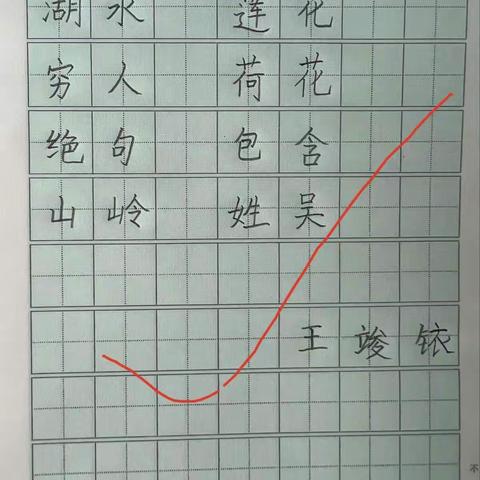 湖水 莲花
穷人 荷花
绝句 包含
山岭 姓吴
王竣铱
不